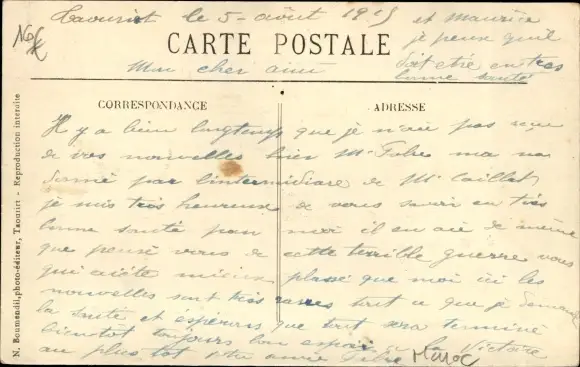 Taourirt le 5 - août 1915
CARTE POSTALE
Mon cher ami
CORRESPONDANCE
ADRESSE
Il y a bien longtemps que je n'ai pas reçu
de vos nouvelles hier Mr Fabre m'a
donné par l'intermidiare de Mr Caillat
je suis très heureuse de vous savoir en très
bonne santé pour moi il en aie de même
que pensé vous de cette terrible guerre vous
qui aiete mieux plassé que moi ici les
nouvelles sont très rares tout ce que je demande
la santé et espérons que tout sera terminé
bientôt toujours bon espoir la Victoire
au plus tot amie Fabre
et Maurice
je peux qu'il
doit etre en très
bonne santé
Maroc
N. Boumendil, photo-éditeur, Taourirt - Reproduction interdite